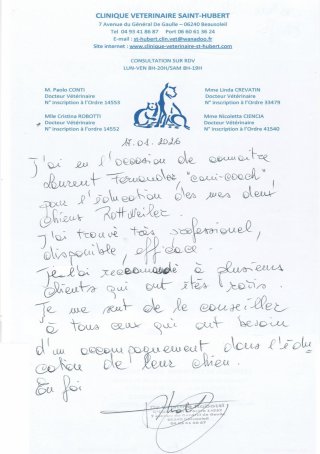 CLINIQUE VETERINAIRE SAINT-HUBERT
7 Avenue du Général De Gaulle – 06240 Beausoleil
Tel 04 93 41 86 87 Port 06 60 61 36 24
E-mail : st-hubert.clin.vet@wanadoo.fr
Site internet : www.clinique-veterinaire-st-hubert.com
CONSULTATION SUR RDV
LUN-VEN 8H-20H/SAM 8H-19H
M. Paolo CONTI
Docteur Vétérinaire
N° inscription à l'Ordre 14553
Mme Linda CREVATIN
Docteur Vétérinaire
N° inscription à l'Ordre 33479
Mlle Cristina ROBOTTI
Docteur Vétérinaire
N° inscription à l'Ordre 14552
Mme Nicoletta CIENCIA
Docteur Vétérinaire
N° inscription à l'Ordre 41540
J'ai eu l'occasion de connaître
Laurent Fernandez "cani-coach"
pour l'éducation des mes deux
chiens Rottweiler.
J'ai trouvé très professionel,
disponible, efficace.
Je l'ai recommandé à plusieurs
clients qui ont étés ravis.
Je me sent de le conseiller
à tous ceux qui ont besoin
d'un accompagnement dans l'édu
cation de leur chien.
En foi